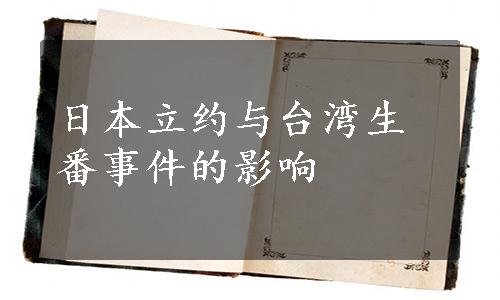 日本立约与台湾生
番事件的影响